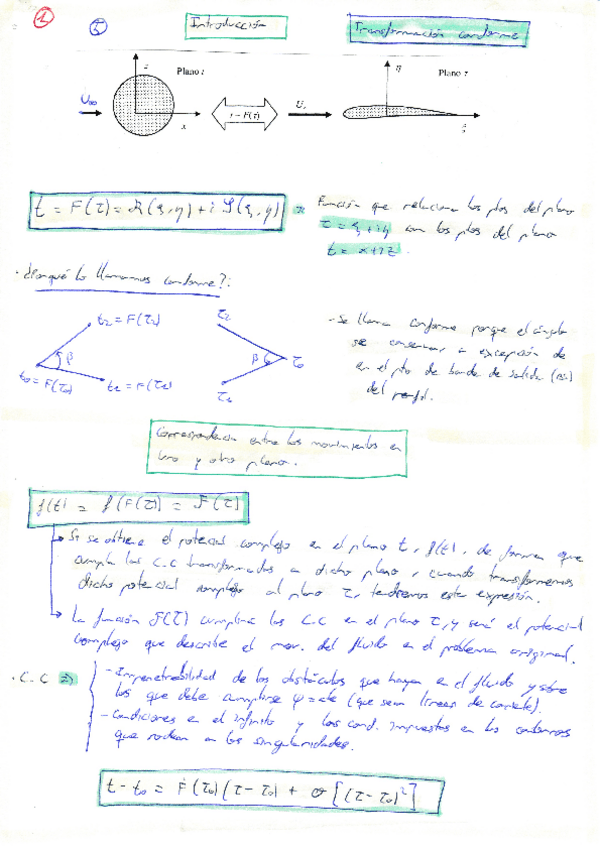 1
5
Introducción
Transformación conforme
z
Plano t
U∞
x
t = F(τ)
U∞
η
Plano τ
ξ
t = F(τ) = R(ξ,η) + i I(ξ,η) ⇒
Función que relaciona los ptos del plano
τ = ξ + iη con los ptos del plano
t = x + iz.
· ¿Porqué lo llamamos conforme?:
t₂ = F(τ₂)
β
t₀ = F(τ₀)
t₂ = F(τ₂)
τ₂
β
τ₀
- Se llama conforme porque el ángulo
se conserva, a excepción de
en el pto de borde de salida
del perfil.
Correspondencia entre los movimientos en
uno y otro plano.
f(t) = f(F(τ)) = F(τ)
↳ Si se obtiene el potencial complejo en el plano t, f(t), de forma que
cumpla las C.C transformadas a dicho plano, cuando transformemos
dicho potencial complejo al plano τ, tendremos esta expresión.
↳ La función F(τ) cumplirá las C.C en el plano τ, y será el potencial
complejo que describe el mov. del fluido en el problema original.
· C.C ⇒
- Impenetrabilidad de los obstáculos que hayan en el fluido y sobre
los que debe cumplirse ψ = cte (que sean líneas de corriente).
- Condiciones en el infinito y las cond. impuestas en los contornos
que rodean a las singularidades.
t - t₀ = Ḟ(τ₀)(τ - τ₀) + σ[(τ - τ₀)²]